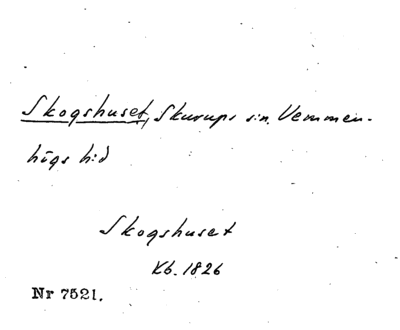 Skogshuset, Skurups s:n, Vemmen-
högs h:d
Skogshuset
Kb. 1826
Nr 7521.